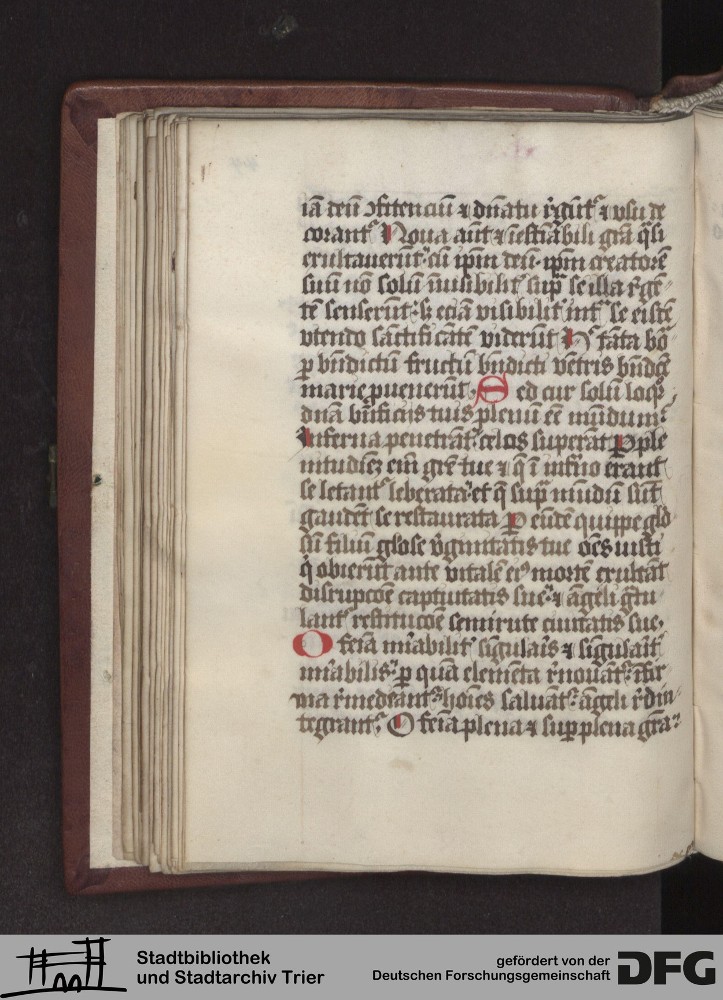 iā deū ↄfitenciū ⁊ dn̄atu r̉gūt᷑ ⁊ vsu de
corant᷑ Noua aūt ⁊ iestīabili grā q̄si
exultauerūt᷑ cū ip̄m deū ip̄m creatorē
suū nō solū īuisibilit᷑ sup̄ se illa r̉gē
tē senserūt᷑ sꝫ eciā visibilit᷑ int᷑ se eistē
vtendo sāctificātē viderūt H᷑ tāta bō
ꝑ bn̄dictū fructū bn̄dicti vētris bn̄dcē
marie ꝓuenerūt᷑ Sed cur solū loq̄r
dn̄a bn̄ficiis tuis plenū eē mūdum᷑
Inferna penetrāt᷑ celos superāt Per ple
nitudiēꝫ em̄ grē tue ⁊ q̄ ī infrno erant᷑
se letant᷑ leberata᷑ et q̄ sup̄ mūdū sūt
gaudēt se restaurata Per eūdē quippe glō
sū filiū gl̄ose v̉ginitatis tue oēs iusti
q̉ obierūt ante vitalē eiꝰ mortē exultāt
disrupcōe captiuitatis sue ⁊ āgeli grātu
lant᷑ restitucōe semirute ciuitatis sue
O feīa mīabilit᷑ sīgulāis ⁊ sīgulaīt
mīabilis ꝑ quā elemēta r̉nouāt᷑ īfir
ma r̉medeant᷑ hoīes saluāt᷑ āgeli r̉din
tegrant᷑ O feīa plena ⁊ suꝑplena grā
Stadtbibliothek
und Stadtarchiv Trier
gefördert von der
Deutschen Forschungsgemeinschaft
DFG